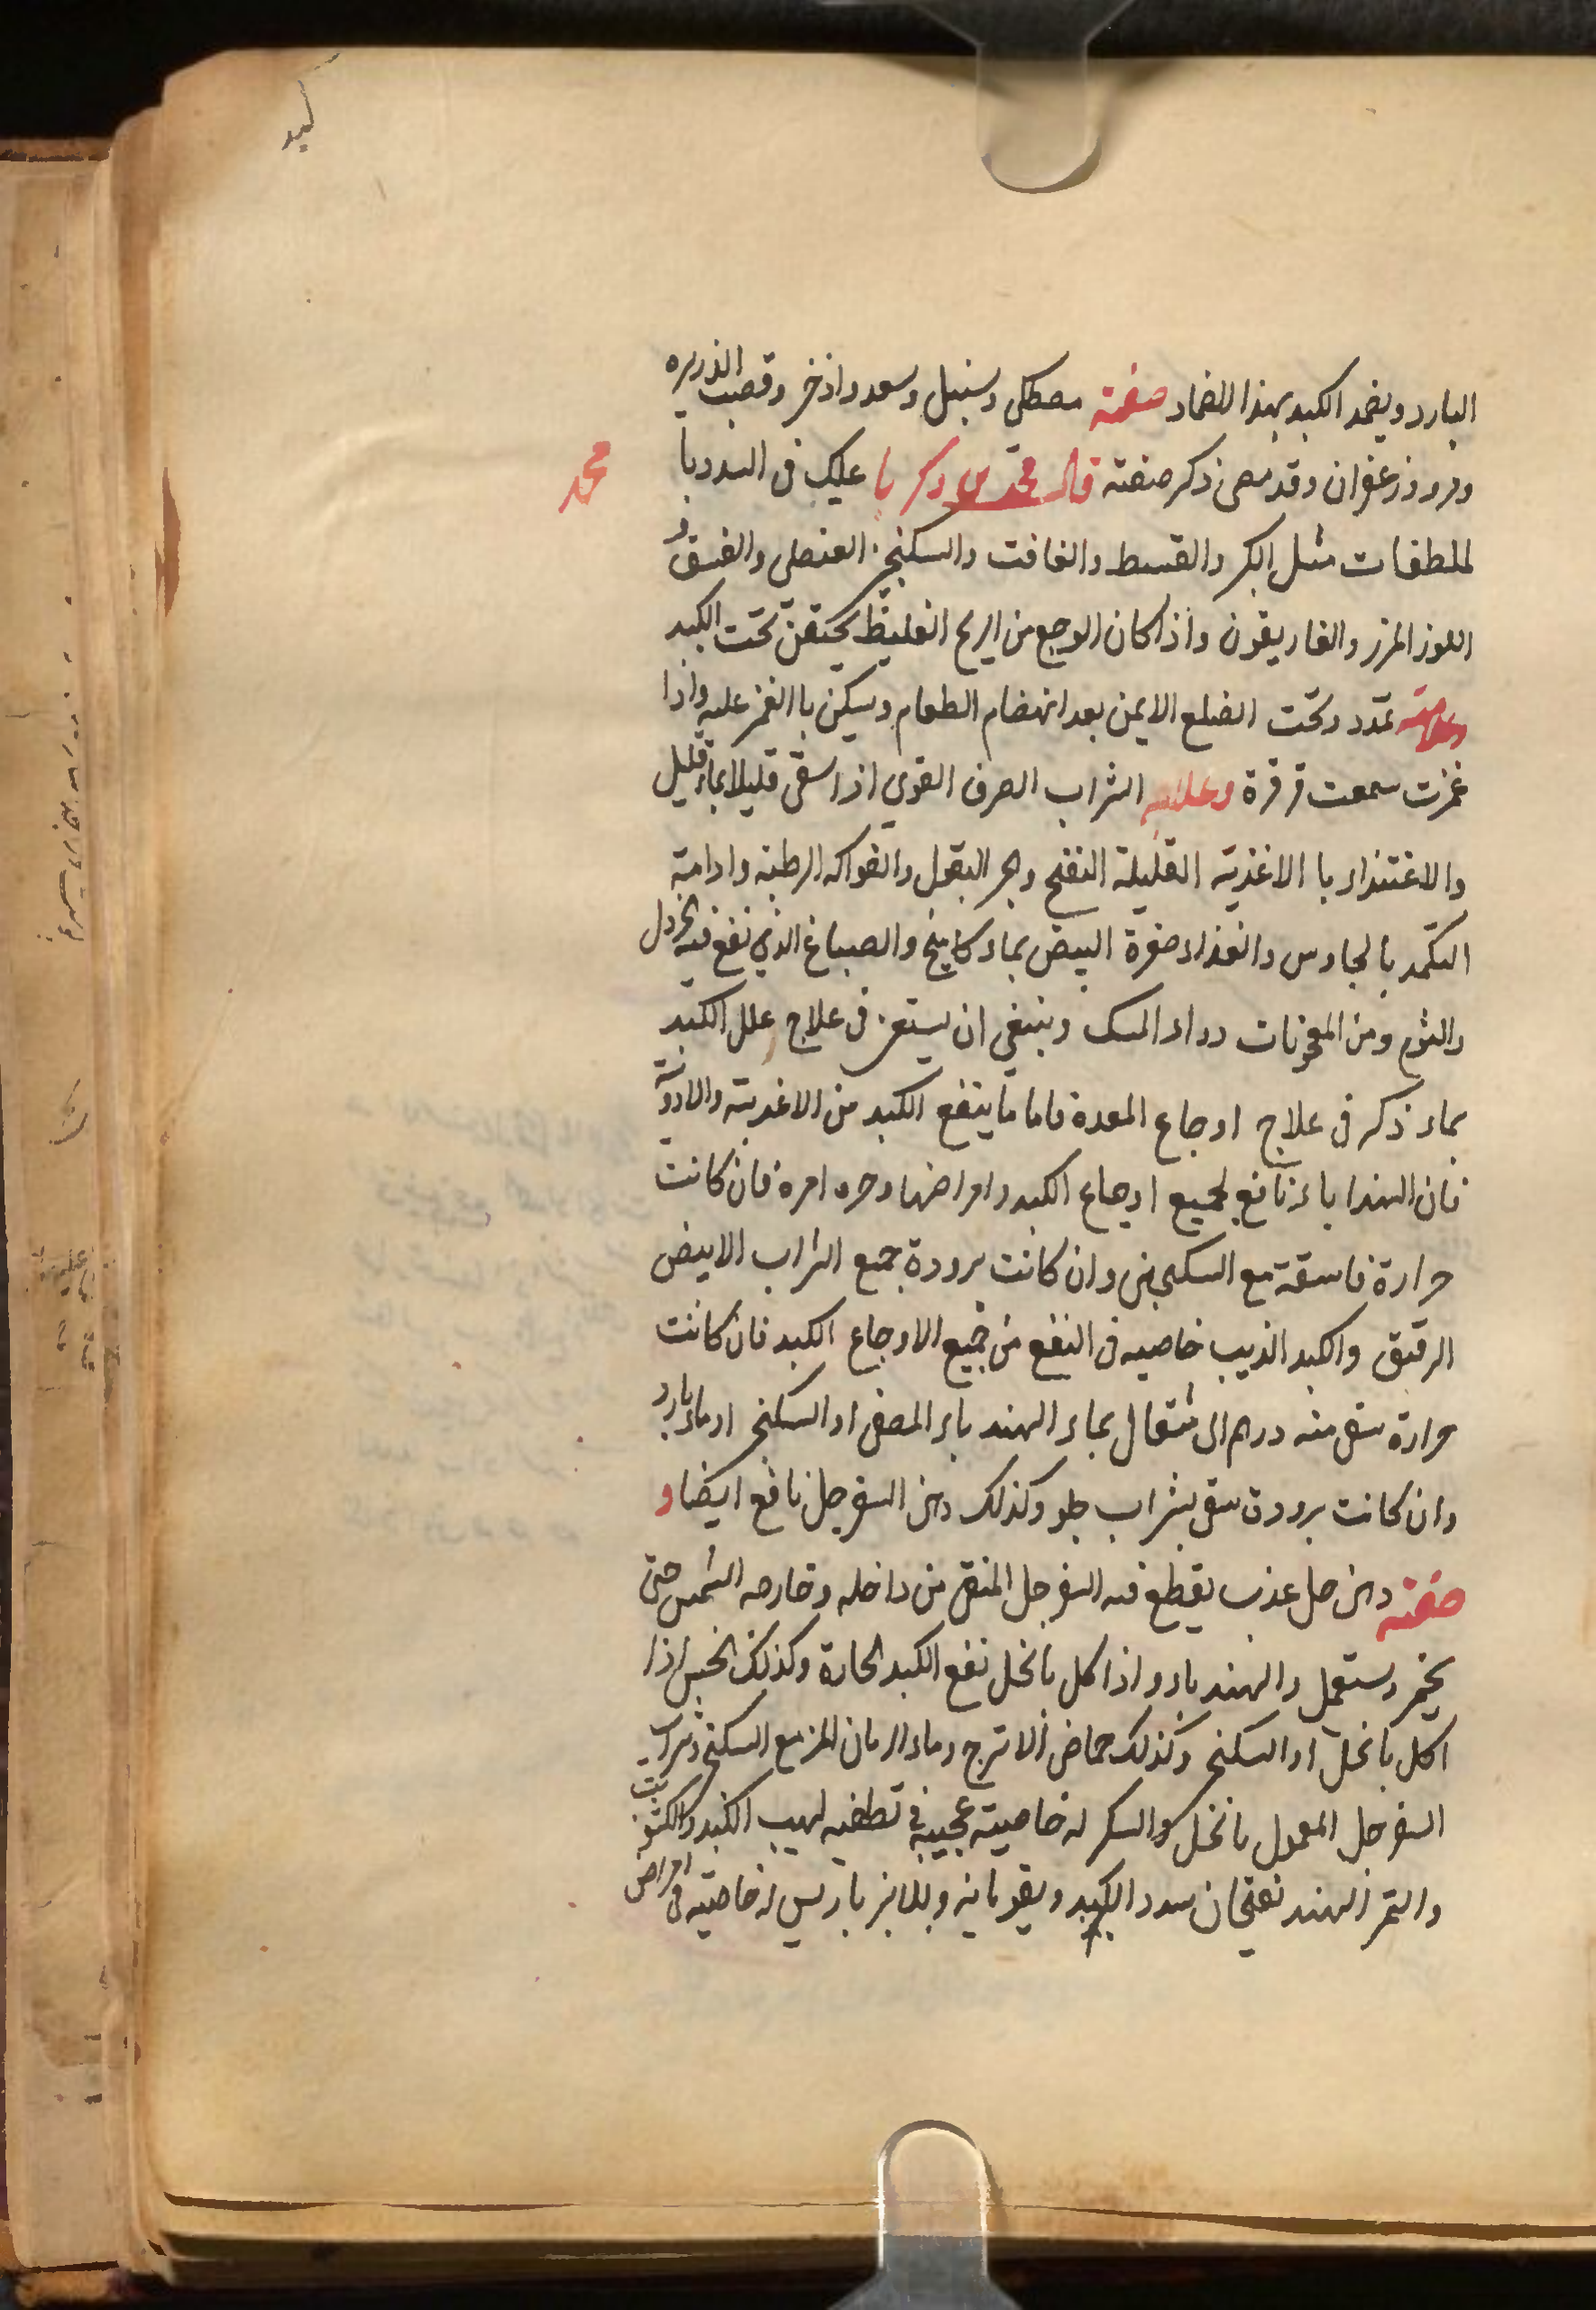 كبد
البارد ويضمد الكبد بهذا الضماد صفته مصطكى وسنبل وسعد واذخر وقصب الذريره
وورد وزعفران وقد مضى ذكر صفته قال محمد بن زكريا عليك فى السدد با
محمد
لملطفات مثل الكبر والقسط والغافت والسكنج. العنصلى والفستق و
اللوز المرر والغاريقون واذا كان الوجع من الريح الغليظ يحتقن تحت الكبد
وعلامته تمدد وتحت الضلع الايمن بعد انهضام الطعام ويسكن با الغمز عليه واذا
غمزت سمعت قرقرة وعلاجه الشراب الصرف القوى اذا سقى قليلا بماء قليل
والاغتذاء با الاغذية القليلة النفخ وهجر البقول والفواكه الرطبة وادامة
التكمد بالجاورس والغذاء صفرة البيض بماء كامخ والصباغ الذي نفع فيه الخردل
والثوم ومن المعجونات دواء المسك وينبغى ان يستعن فى علاج علل الكبد
بماء ذكر فى علاج اوجاع المعدة فاما ما ينفع الكبد من الاغذية والادوية
فان الهندباء نافع لجميع اوجاع الكبد وامراضها وحره امره فان كانت
حرارة فاسقة مع السكنجبين وان كانت برودة جمع الشراب الابيض
الرقيق والكبد الذيب خاصيه فى النفع من جميع الاوجاع الكبد فان كانت
حرارة سقى منه درهم الى مثقال بماء الهندباء المصفى او السكنج او ماء بارد
وان كانت برودة سقى بشراب حلو وكذلك دهن السفرجل نافع ايضا و
صفته دهن حل عذب يقطع فيه السفرجل المنقى من داخله وخارجه الشمس حتى
يخمر ويستعمل والهندباء واذا كل بالخل نفع الكبد الحارة وكذلك الخس اذا
اكل بالخل او السكنج وكذلك حماض الاترج وماء الرمان المز مع السكنج وشراب
السفرجل المعمول بالخل والسكر له خاصيته عجيبة فى تطفيه لهيب الكبد والكشوث
والتمر الهند نفتحان سدد الكبد ويقويانه وللانبرباريس له خاصيته فى امراض